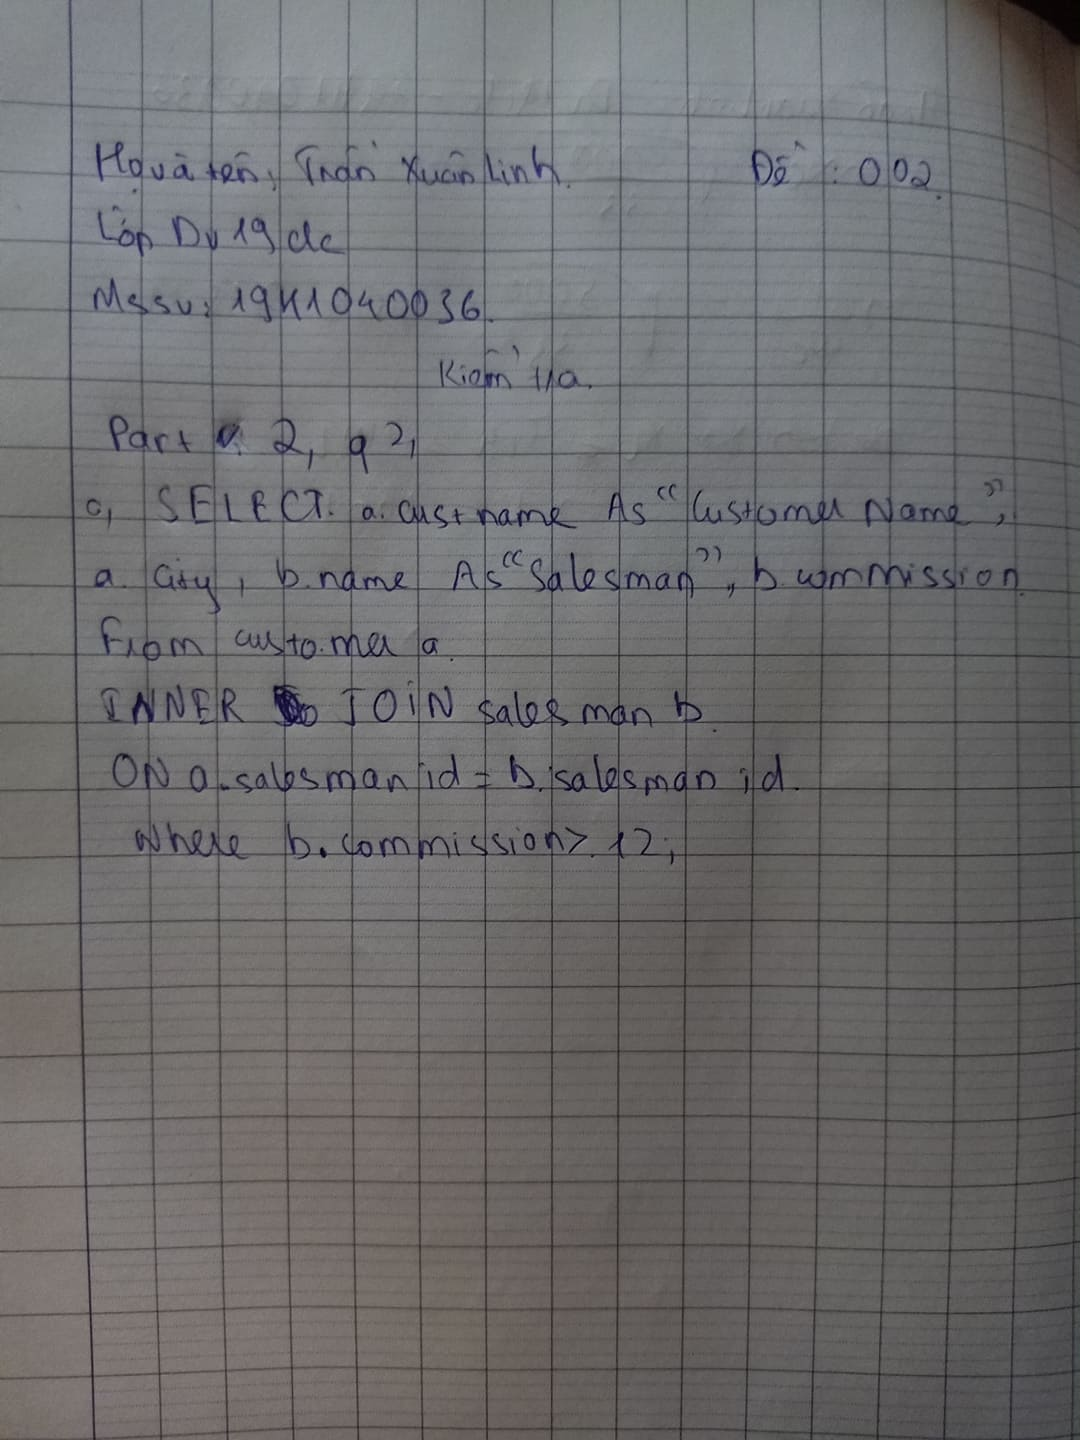 Họ và tên: Trần Xuân Linh. Đề: 002.
Lớp DV19dc
Mssv: 19H1040036.
Kiểm tra.
Part 2, q2,
c, SELECT. a. custname As "Customer Name",
a. City, b.name As "Salesman", b.commission
From customer a.
INNER JOIN salesman b.
ON a.salesman id = b.salesman id.
Where b.commission > .12;